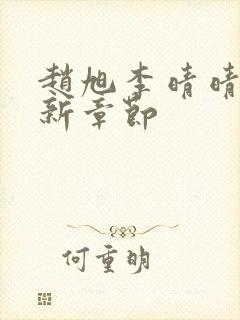 趙旭李晴晴
新章節
何重明